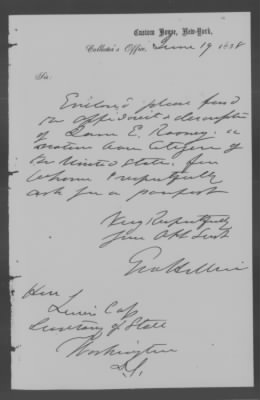 Custom House, New-York,
Collector's Office, June 19 1858
Sir:
Enclosed please find
an affidavit & description
of E. Rooney. a
native born Citizen of
the United States. for
whom I respectfully
ask for a passport
Very Respectfully
Your Obt Servt
Hon
Lewis Cass
Secretary of State
Washington
D.C.